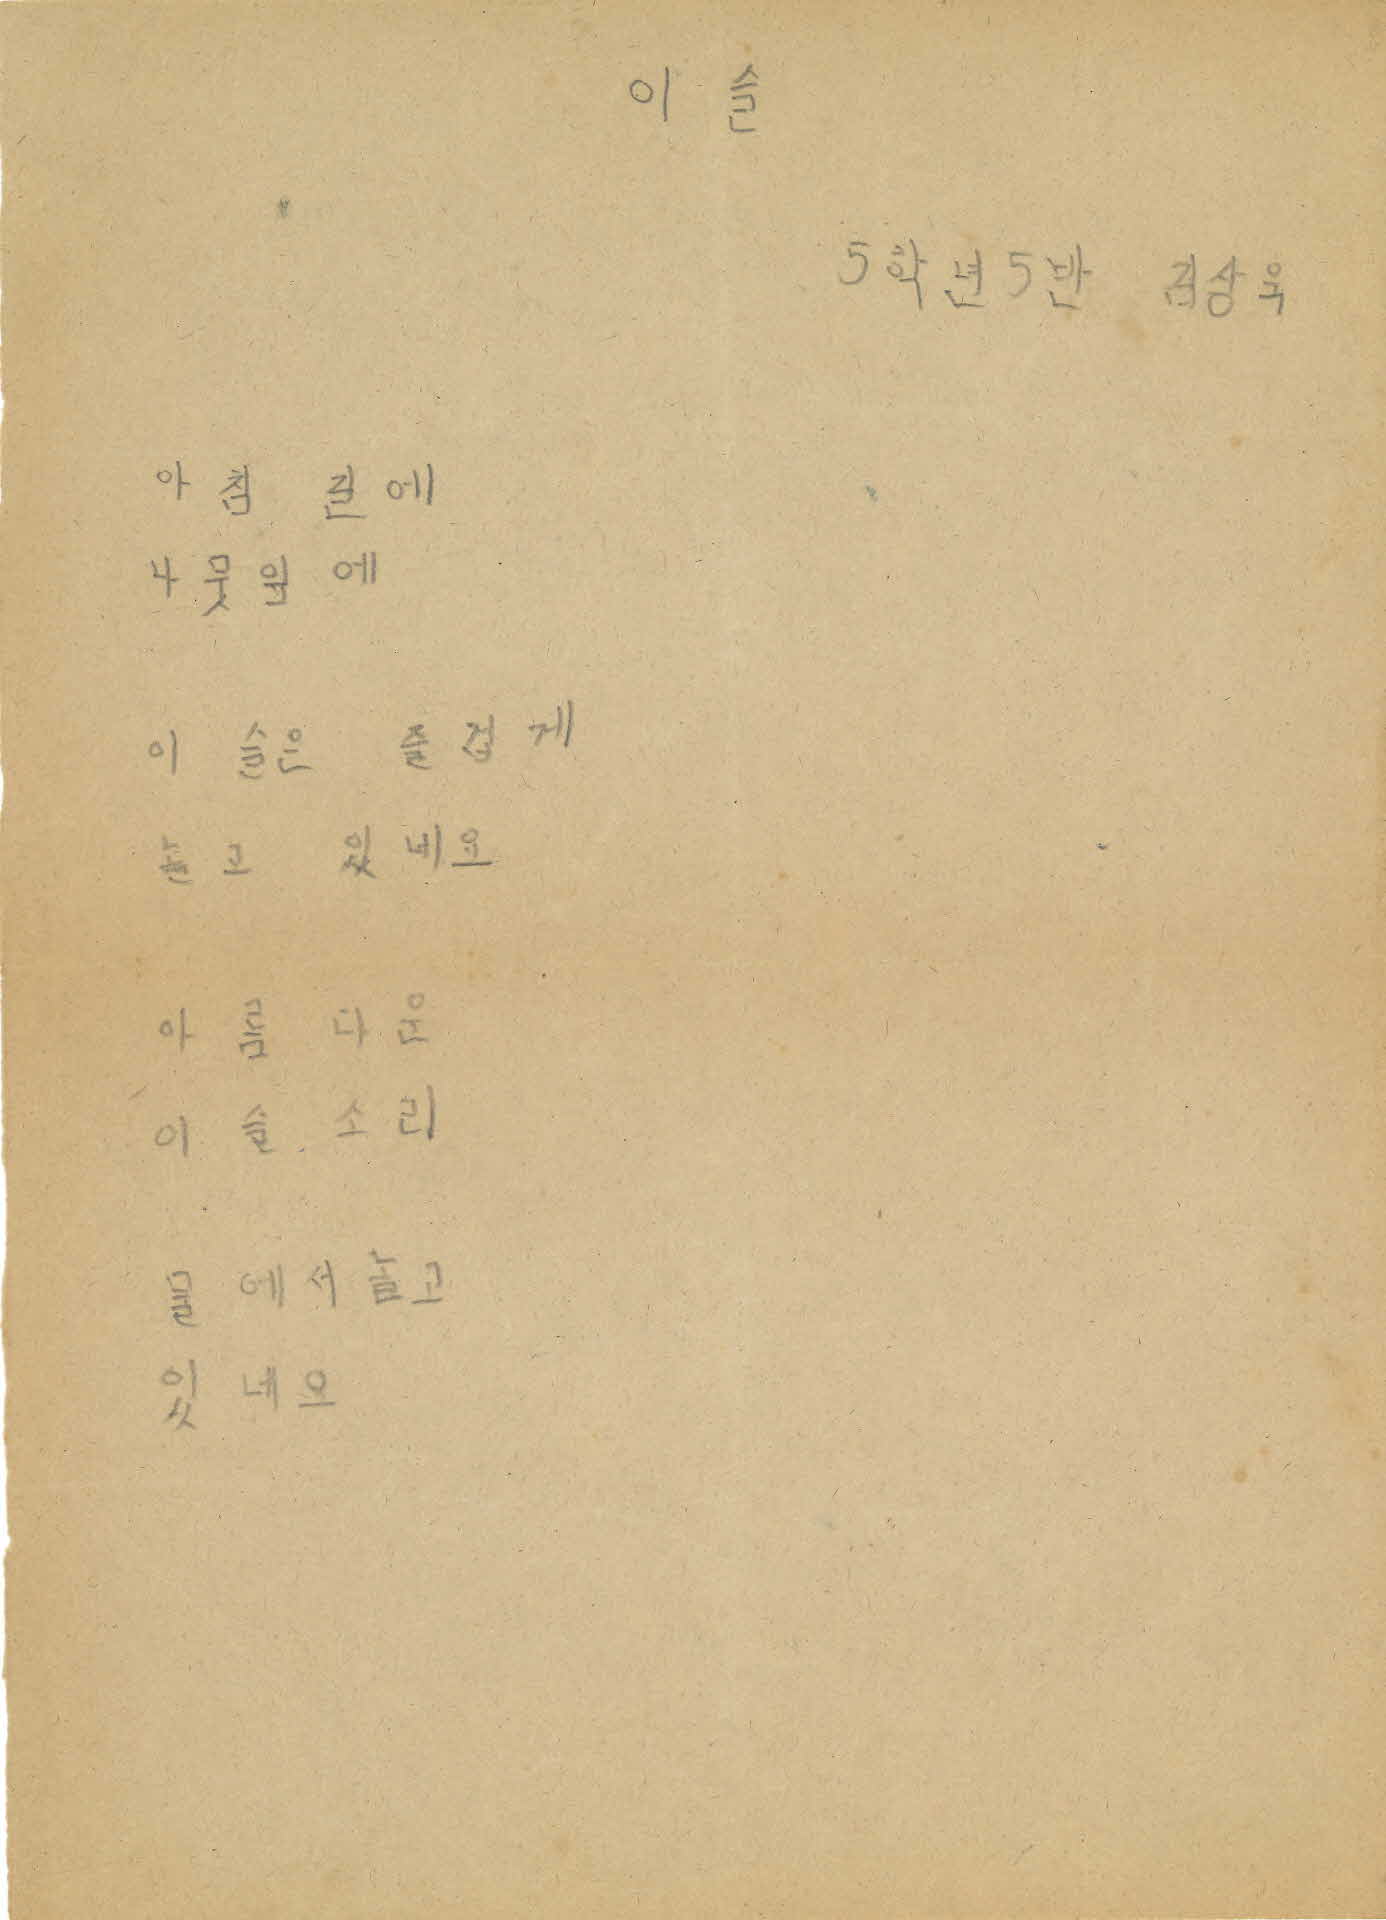 이슬
5학년5반 김상욱
아침 길에
나뭇잎에
이슬은 즐겁게
살고 있네요
아름다운
이슬소리
들에서살고
있네요